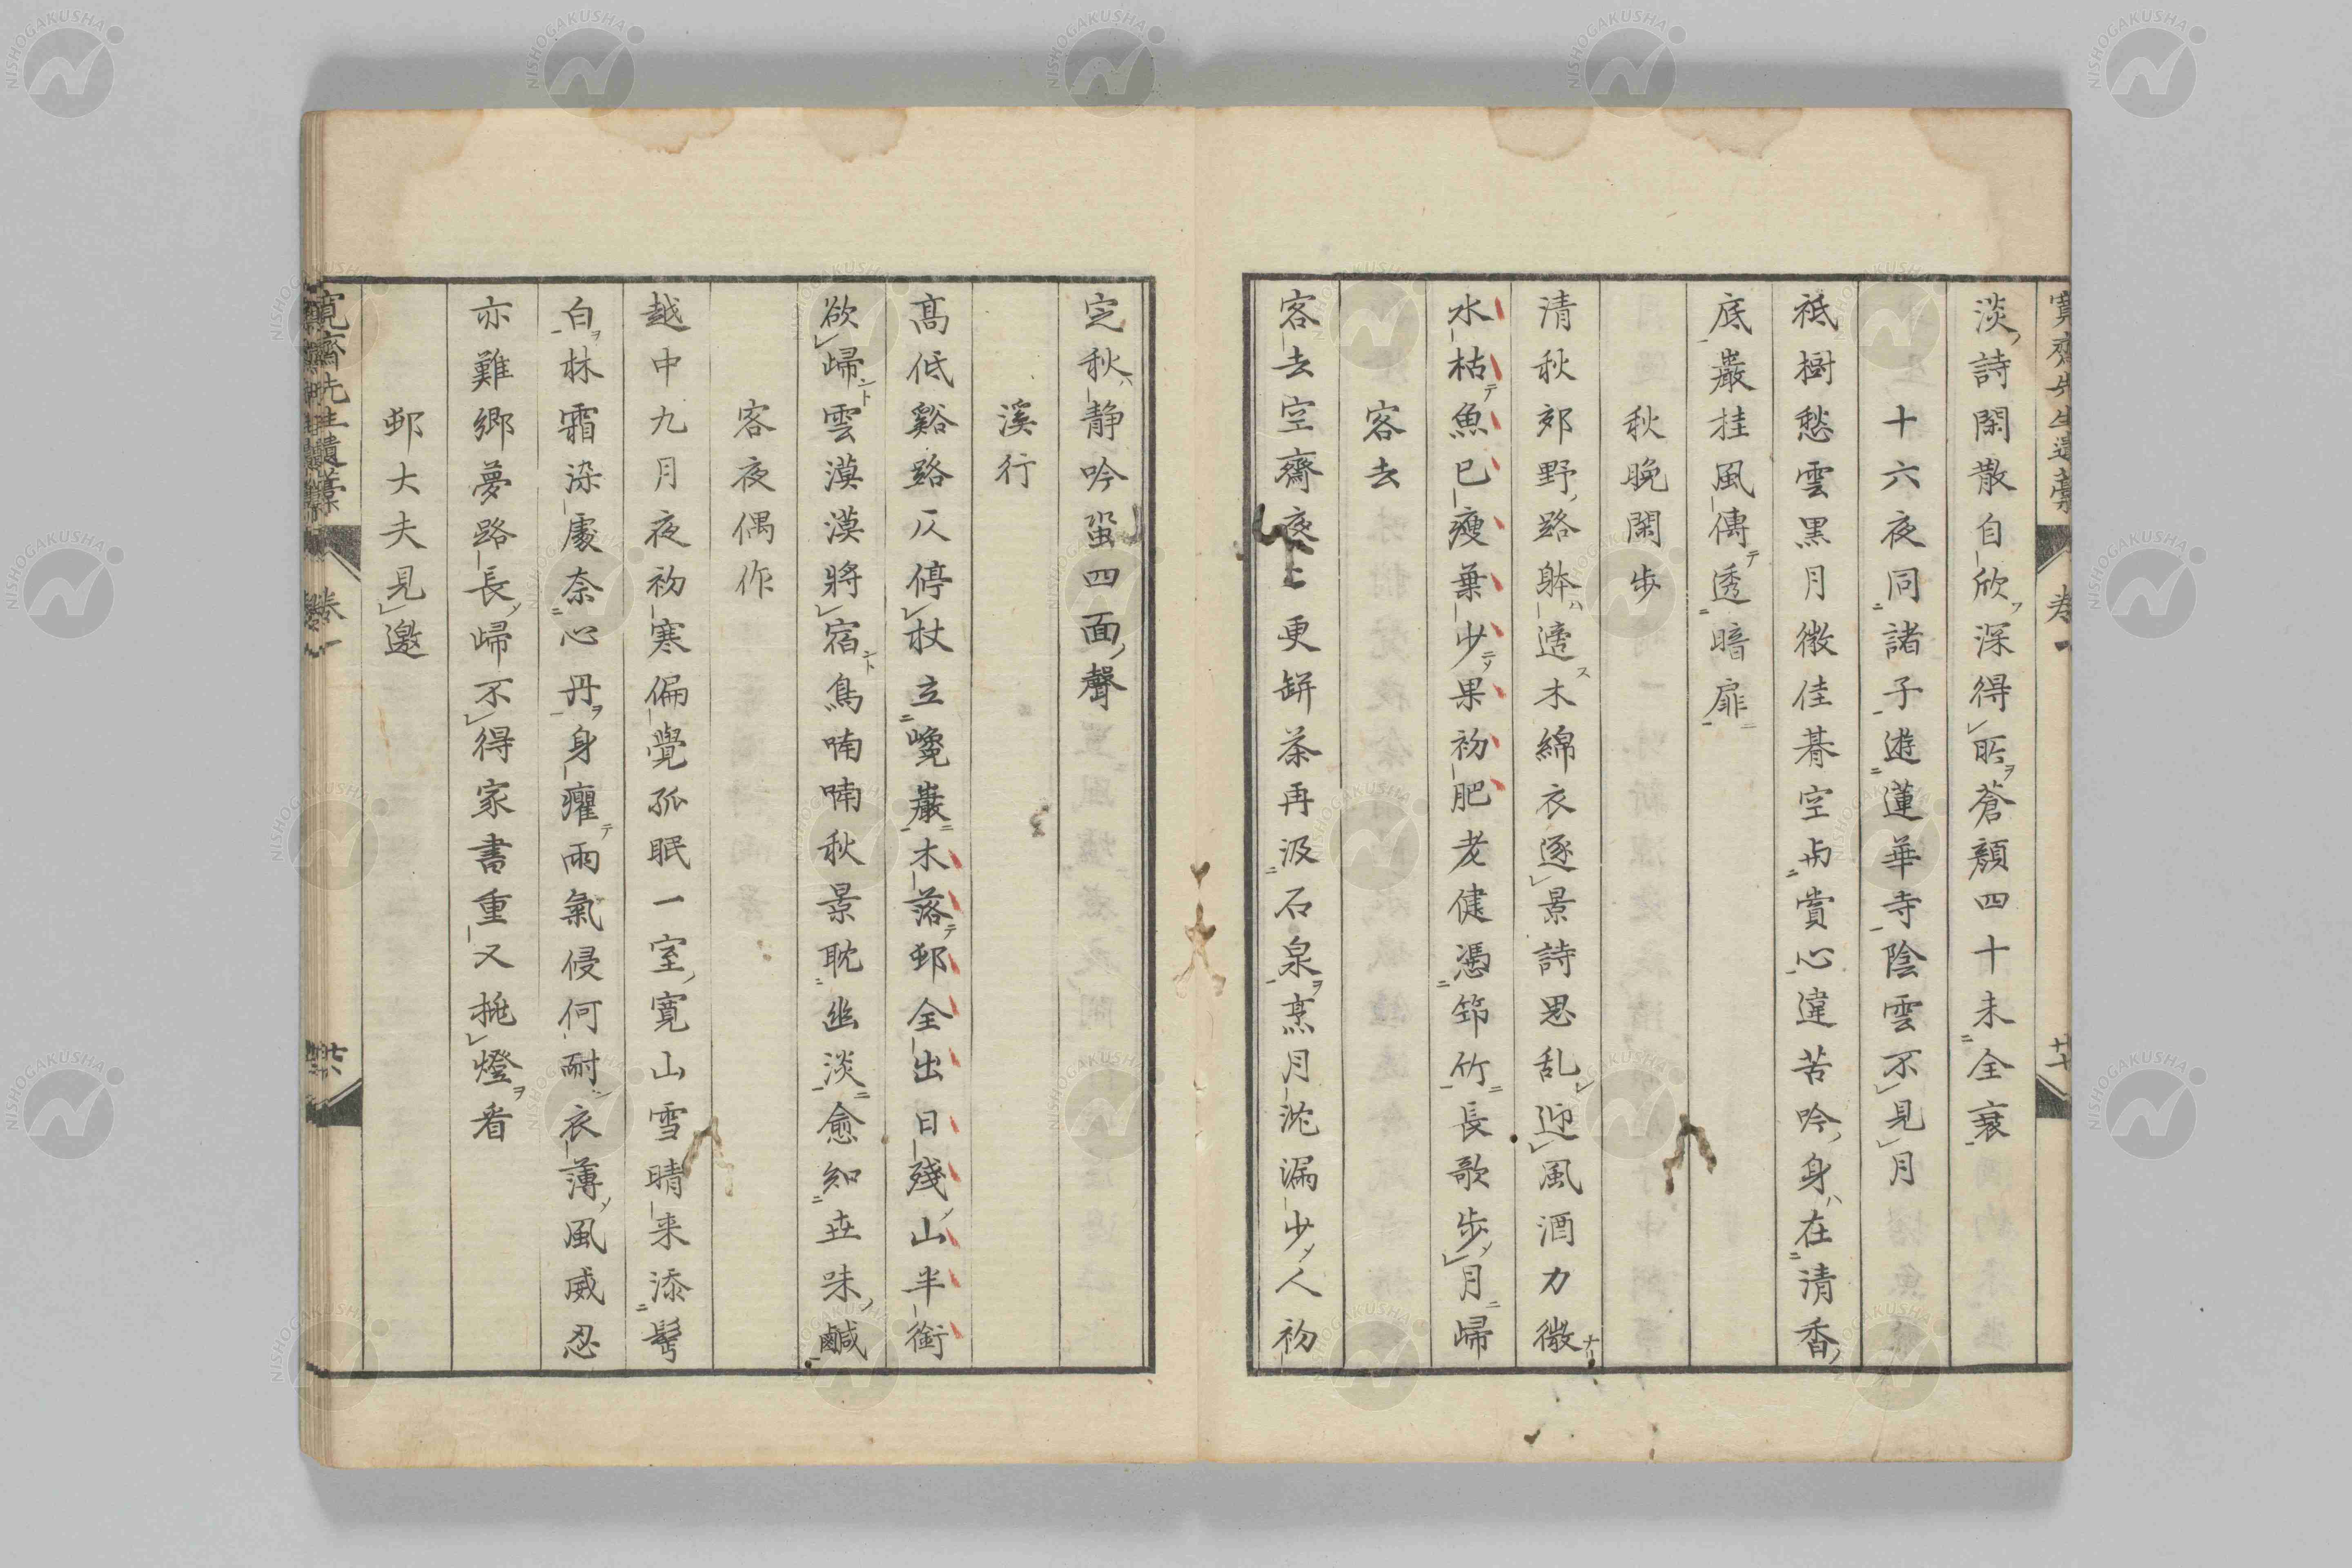 淡詩閑散自欣深得所蒼顏四十未全衰
十六夜同諸子遊蓮華寺陰雲不見月
祇樹愁雲黒月微佳朞空与賞心違苦吟身在清香
底巖挂風傳透暗扉
秋晚閑步
清秋郊野路躰邊木綿衣逐景詩思乱迎風酒力微
水枯魚已瘦葉少果初肥老健憑筇竹長歌步月歸
客去
客去空齋夜上更缾茶再汲石泉烹月沈漏少人初
定秋静吟蛩四面聲
溪行
髙低谿路仄停杖立巉巖木落邨全出日殘山半銜
欲歸雲漠漠將宿鳥喃喃秋景耽幽淡愈知世味鹹
客夜偶作
越中九月夜初寒偏覺孤眠一室寬山雪晴来添鬢
白林霜染處奈心丹身癯雨氣侵何耐衣薄風威忍
亦難鄉夢路長歸不得家書重又挑燈看
邨大夫見邀
寛齋先生遺藁 卷一
NISHOGAKUSHA